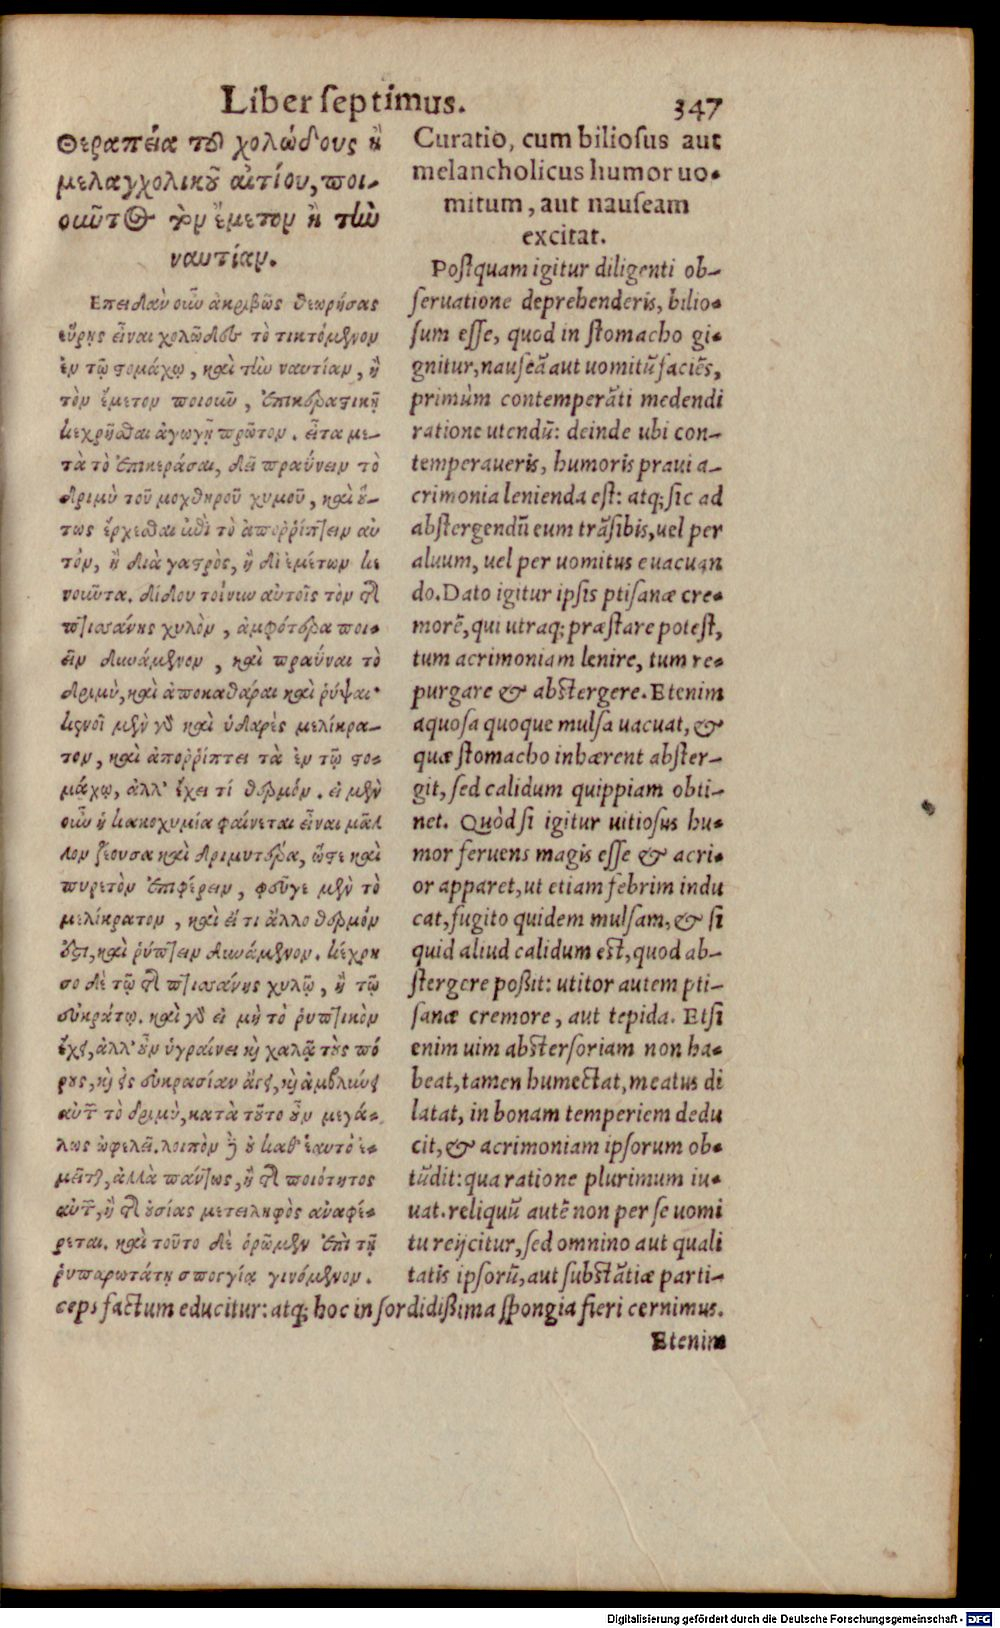 Liber septimus. 347
Θεραπεία τοῦ χολώδους ἢ
μελαγχολικοῦ αἰτίου, ποι-
οῦντος τὸν ἔμετον ἢ τὴν
ναυτίαν.
Επειδὰν οὖν ἀκριβῶς θεωρήσας
εὕρῃς εἶναι χολῶδες τὸ τικτόμενον
ἐν τῷ στομάχῳ, καὶ τὴν ναυτίαν, ἢ
τὸν ἔμετον ποιοῦν, ἐπικεραστικῇ
κεχρῆσθαι ἀγωγῇ πρῶτον. εἶτα με-
τὰ τὸ ἐπικεράσαι, δεῖ πραΰνειν τὸ
δριμὺ τοῦ μοχθηροῦ χυμοῦ, καὶ οὕ-
τως ἔρχεσθαι ἐπὶ τὸ ἀποῤῥίπτειν αὐ
τόν, ἢ διὰ γαστρὸς, ἢ δι' ἐμέτων κε
νοῦντα. δίδου τοίνυν αὐτοῖς τὸν τῆς
πτισσάνης χυλὸν, ἀμφότερα ποι-
εῖν δυνάμενον, καὶ πραῧναι τὸ
δριμὺ, καὶ ἀποκαθάραι καὶ ῥύψαι·
κενοῖ μὲν γὸ καὶ ὑδαρὲς μελίκρα-
τον, καὶ ἀποῤῥίπτει τὰ ἐν τῷ στο-
μάχῳ, ἀλλ' ἔχει τί θερμόν. εἰ μὲν
οὖν ἡ κακοχυμία φαίνεται εἶναι μᾶλ
λον ζέουσα καὶ δριμυτέρα, ὥστε καὶ
πυρετὸν ἐπιφέρειν, φεῦγε μὲν τὸ
μελίκρατον, καὶ εἴ τι ἄλλο θερμόν
ἐστι, καὶ ῥύπτειν δυνάμενον. κέχρη
σο δὲ τῷ τῆς πτισσάνης χυλῷ, ἢ τῷ
εὐκράτῳ. καὶ γὸ εἰ μὴ τὸ ῥυπτικὸν
ἔχει, ἀλλ' οὖν ὑγραίνει καὶ χαλᾷ τοὺς πό
ρους, καὶ εἰς εὐκρασίαν ἄγει, καὶ ἀμβλύνει
αὐτῶν τὸ δριμὺ, κατὰ τοῦτο οὖν μεγά-
λως ὠφελεῖ. λοιπὸν δὲ οὐ καθ' ἑαυτὸ ἐ-
μεῖται, ἀλλὰ πάντως, ἢ τῆς ποιότητος
αὐτῶν, ἢ τῆς οὐσίας μετειληφὸς ἀναφέ-
ρεται. καὶ τοῦτο δὲ ὁρῶμεν ἐπὶ τῇ
ῥυπαρωτάτῃ σπογγίᾳ γινόμενον.
Curatio, cum biliosus aut
melancholicus humor uo-
mitum, aut nauseam
excitat.
Postquam igitur diligenti ob-
seruatione deprehenderis, bilio-
sum esse, quod in stomacho gi-
gnitur, nauseã aut uomitũ faciẽs,
primùm contemperãti medendi
ratione utendũ: deinde ubi con-
temperaueris, humoris praui a-
crimonia lenienda est: atq; sic ad
abstergendũ eum trãsibis, uel per
aluum, uel per uomitus euacuan
do. Dato igitur ipsis ptisanæ cre-
morẽ, qui utraq; præstare potest,
tum acrimoniam lenire, tum re-
purgare & abstergere. Etenim
aquosa quoque mulsa uacuat, &
quæ stomacho inhærent abster-
git, sed calidum quippiam obti-
net. Quòd si igitur uitiosus hu-
mor feruens magis esse & acri-
or apparet, ut etiam febrim indu
cat, fugito quidem mulsam, & si
quid aliud calidum est, quod ab-
stergere poßit: utitor autem pti-
sanæ cremore, aut tepida. Etsi
enim uim abstersoriam non ha-
beat, tamen humectat, meatus di
latat, in bonam temperiem dedu
cit, & acrimoniam ipsorum ob-
tũdit: qua ratione plurimum iu-
uat. reliquũ autẽ non per se uomi
tu reijcitur, sed omnino aut quali
tatis ipsorũ, aut substãtiæ parti-
ceps factum educitur: atq; hoc in sordidißima spongia fieri cernimus.
Etenim
Digitalisierung gefördert durch die Deutsche Forschungsgemeinschaft - DFG